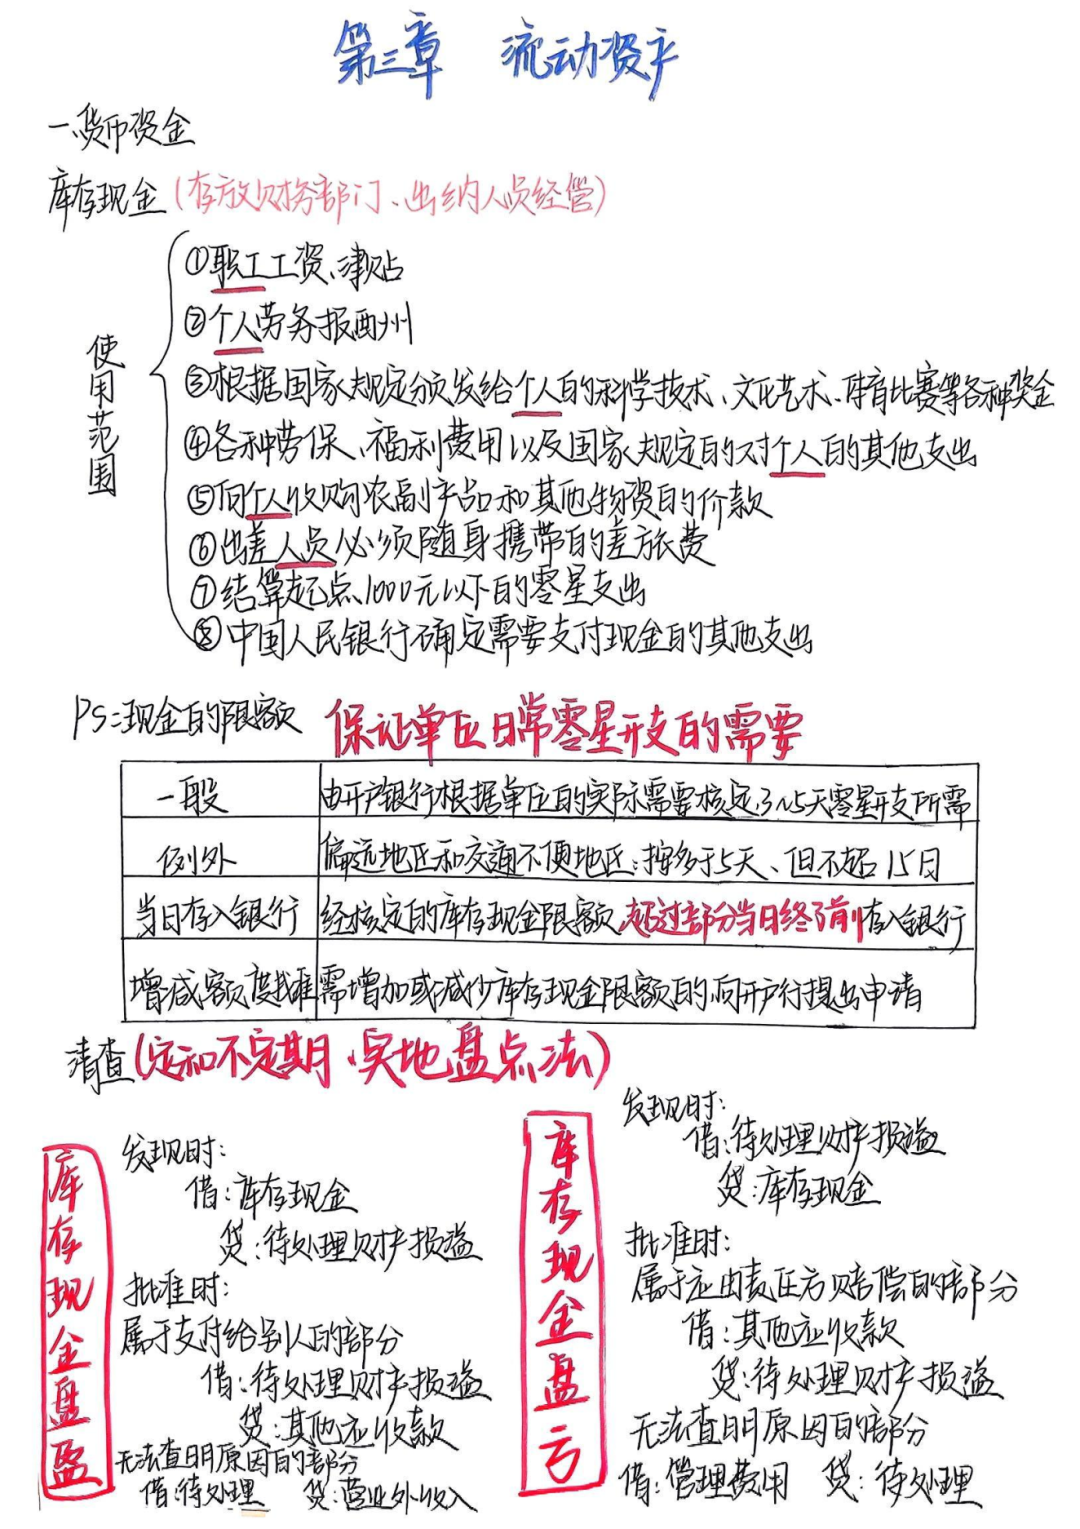 第三章 流动资产
一、货币资金
库存现金(存放财务部门、出纳人员经管)
使用范围
①职工工资、津贴
②个人劳务报酬
③根据国家规定颁发给个人的科学技术、文化艺术、体育比赛等各种奖金
④各种劳保、福利费用以及国家规定的对个人的其他支出
⑤向个人收购农副产品和其他物资的价款
⑥出差人员必须随身携带的差旅费
⑦结算起点1000元以下的零星支出
⑧中国人民银行确定需要支付现金的其他支出
PS:现金的限额 保证单位日常零星开支的需要
一般 由开户银行根据单位的实际需要核定,3~5天零星开支所需
例外 偏远地区和交通不便地区:按多于5天、但不超15日
当日存入银行 经核定的库存现金限额,超过部分当日终了前存入银行
增减额度找谁 需增加或减少库存现金限额的,向开户行提出申请
清查(定和不定期、实地盘点法)
库存现金盘盈
发现时:
借:库存现金
贷:待处理财产损溢
批准时:
属于支付给别人的部分
借:待处理财产损溢
贷:其他应收款
无法查明原因的部分
借:待处理 贷:营业外收入
库存现金盘亏
发现时:
借:待处理财产损溢
贷:库存现金
批准时:
属于应由责任方赔偿的部分
借:其他应收款
贷:待处理财产损溢
无法查明原因的部分
借:管理费用 贷:待处理